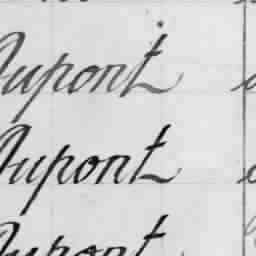 Dupont
Dupont
Dupont